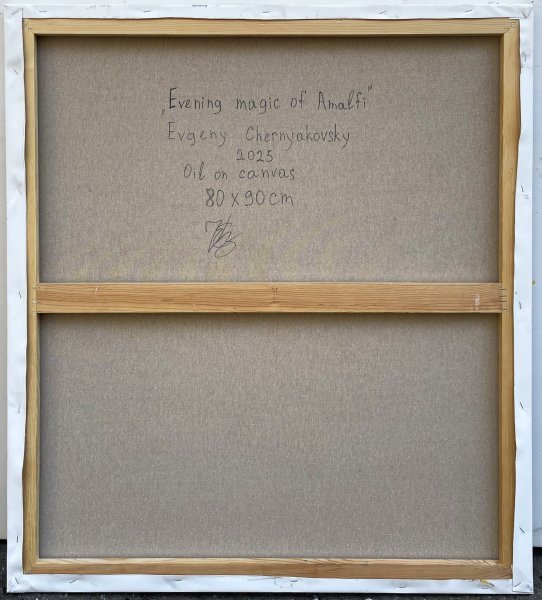 „Evening magic of Amalfi"
Evgeny Chernyakovsky
2025
Oil on canvas
80 x 90 cm